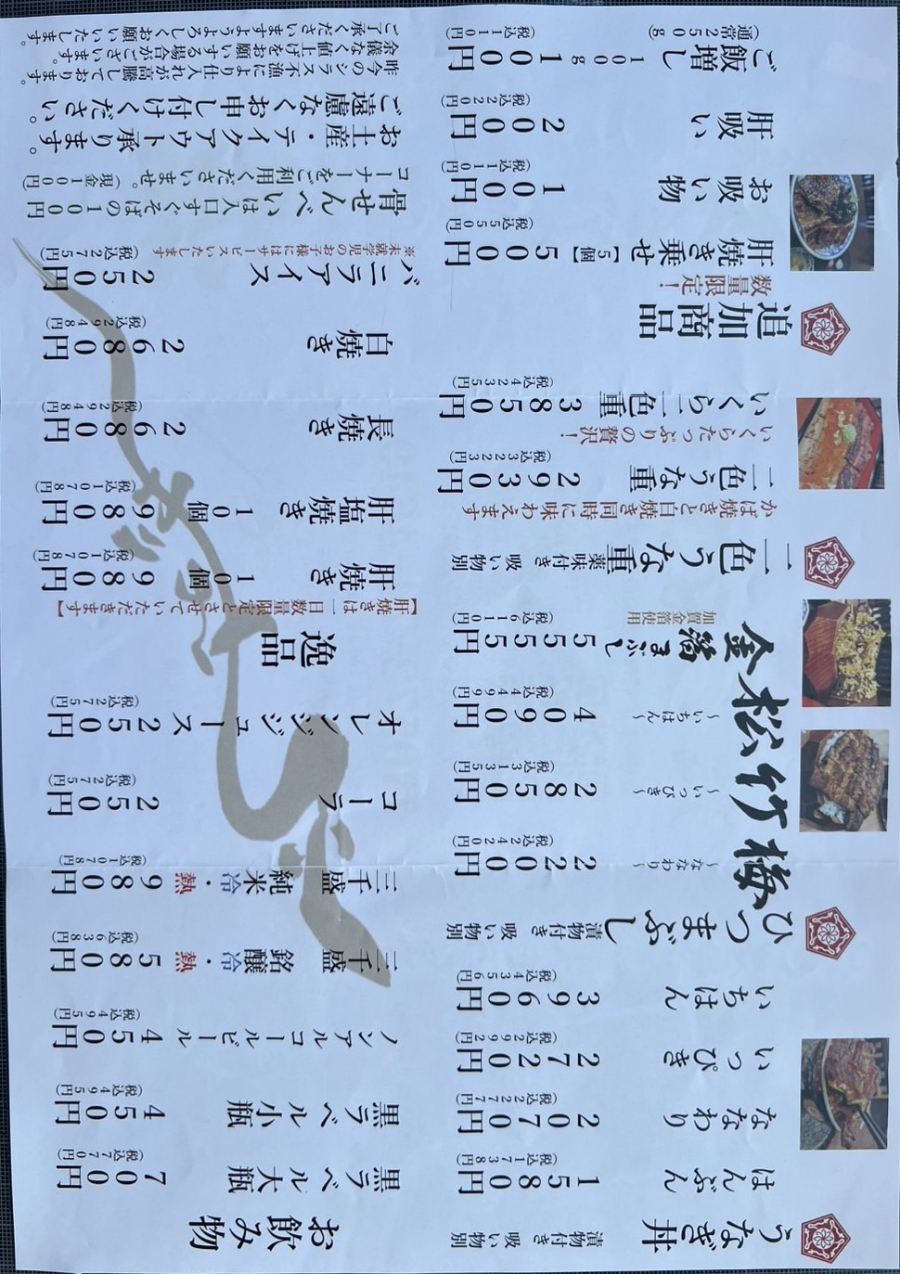 うなぎ丼 漬物付き 吸い物別
はんぶん 1580円
(税込1738円)
ななわり 2070円
(税込2277円)
いっぴき 2720円
(税込2992円)
いちはん 3960円
(税込4356円)
ひつまぶし 漬物付き 吸い物別
梅 ～ななわり～ 2200円
(税込2420円)
竹 ～いっぴき～ 2850円
(税込3135円)
松 ～いちはん～ 4090円
(税込4499円)
金箔まぶし 5555円
加賀金箔使用 (税込6110円)
二色うな重 薬味付き 吸い物別
かば焼きと白焼き同時に味わえます
二色うな重 2930円
(税込3223円)
いくらたっぷりの贅沢！
いくら二色重 3850円
(税込4235円)
追加商品
数量限定！
肝焼き乗せ【5個】 500円
(税込550円)
お吸い物 100円
(税込110円)
肝吸い 200円
(税込220円)
ご飯増し 100g 100円
(通常250g) (税込110円)
お飲み物
黒ラベル大瓶 700円
(税込770円)
黒ラベル小瓶 450円
(税込495円)
ノンアルコールビール 450円
(税込495円)
三千盛 銘醸 冷・熱 580円
(税込638円)
三千盛 純米 冷・熱 980円
(税込1078円)
コーラ 250円
(税込275円)
オレンジジュース 250円
(税込275円)
逸品
【肝焼きは一日数量限定とさせていただきます】
肝焼き 10個 980円
(税込1078円)
肝塩焼き 10個 980円
(税込1078円)
長焼き 2680円
(税込2948円)
白焼き 2680円
(税込2948円)
バニラアイス 250円
※未就学児のお子様にはサービスいたします (税込275円)
骨せんべいは入口すぐそばの100円
コーナーをご利用くださいませ。(現金100円)
お土産・テイクアウト承ります。
ご遠慮なくお申し付けください。
昨今のシラス不漁により仕入れが高騰しております。
余儀なく値上げをお願いする場合がございます。
ご了承くださいますようよろしくお願いいたします。